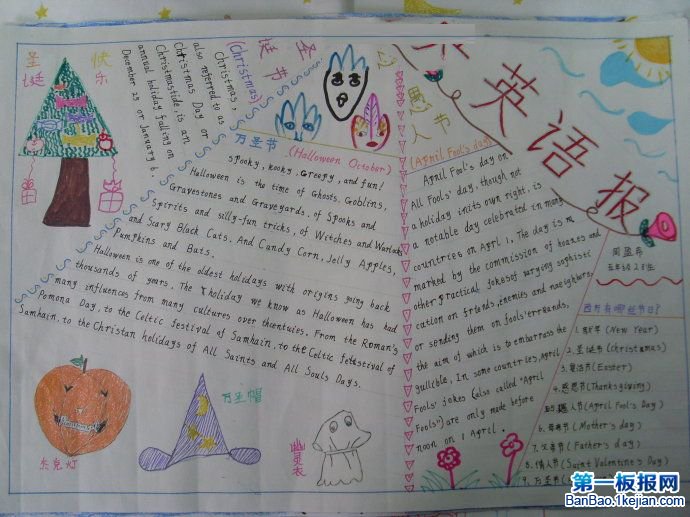 圣诞
快乐
圣诞节
(Christmas)
Christmas,
also referred to as
Christmas Day or
Christmastide is an
annual holiday falling on
December 25 or January 6.
万圣节
(Halloween October)
Spooky, kooky. Creepy, and fun!
Halloween is the time of Ghosts, Goblins,
Gravestones and Graveyards. of Spooks and
Spirits and silly-fun tricks, of Witches and Warlocks
and Scary Black Cats. And Candy Corn, Jelly Apples,
Pumpkins and Bats.
Halloween is one of the oldest holidays with origins going back
thousands of years. The holiday we know as Halloween has had
many influences from many cultures over the
From the Roman's
Pomona Day, to the Celtic festival of Samhain, to the Celtic
of
Samhain, to the Christan holidays of All Saints and All Souls Days.
杰克灯
万圣帽
幽灵衣
愚人节
(April Fool's day)
April Fool's day on
All Fools' day, though not
a holiday in its own right, is
a notable day celebrated in many
countries on April 1, The day is
marked by the commission of hoaxes and
other practical jokes of varying sophisti
cation on friends, enemies and
or sending them on fools'
the aim of which is to embarrass the
gullible, In some countries, April
Fools' jokes (also called "April
Fools") are only made before
noon on 1 April.
英语报
西方有哪些节日?
1. 新年 (New Year)
2. 圣诞节 (christamas)
3. 复活节 (Easter)
4. 感恩节 (Thanksgiving)
5. 愚人节 (April Fool's Day)
6. 母亲节 (Mother's day)
7. 父亲节 (Father's day)
8. 情人节 (Saint Valentine's Day)
9. 万圣节
第一板报网
BanBao.1kejian.com